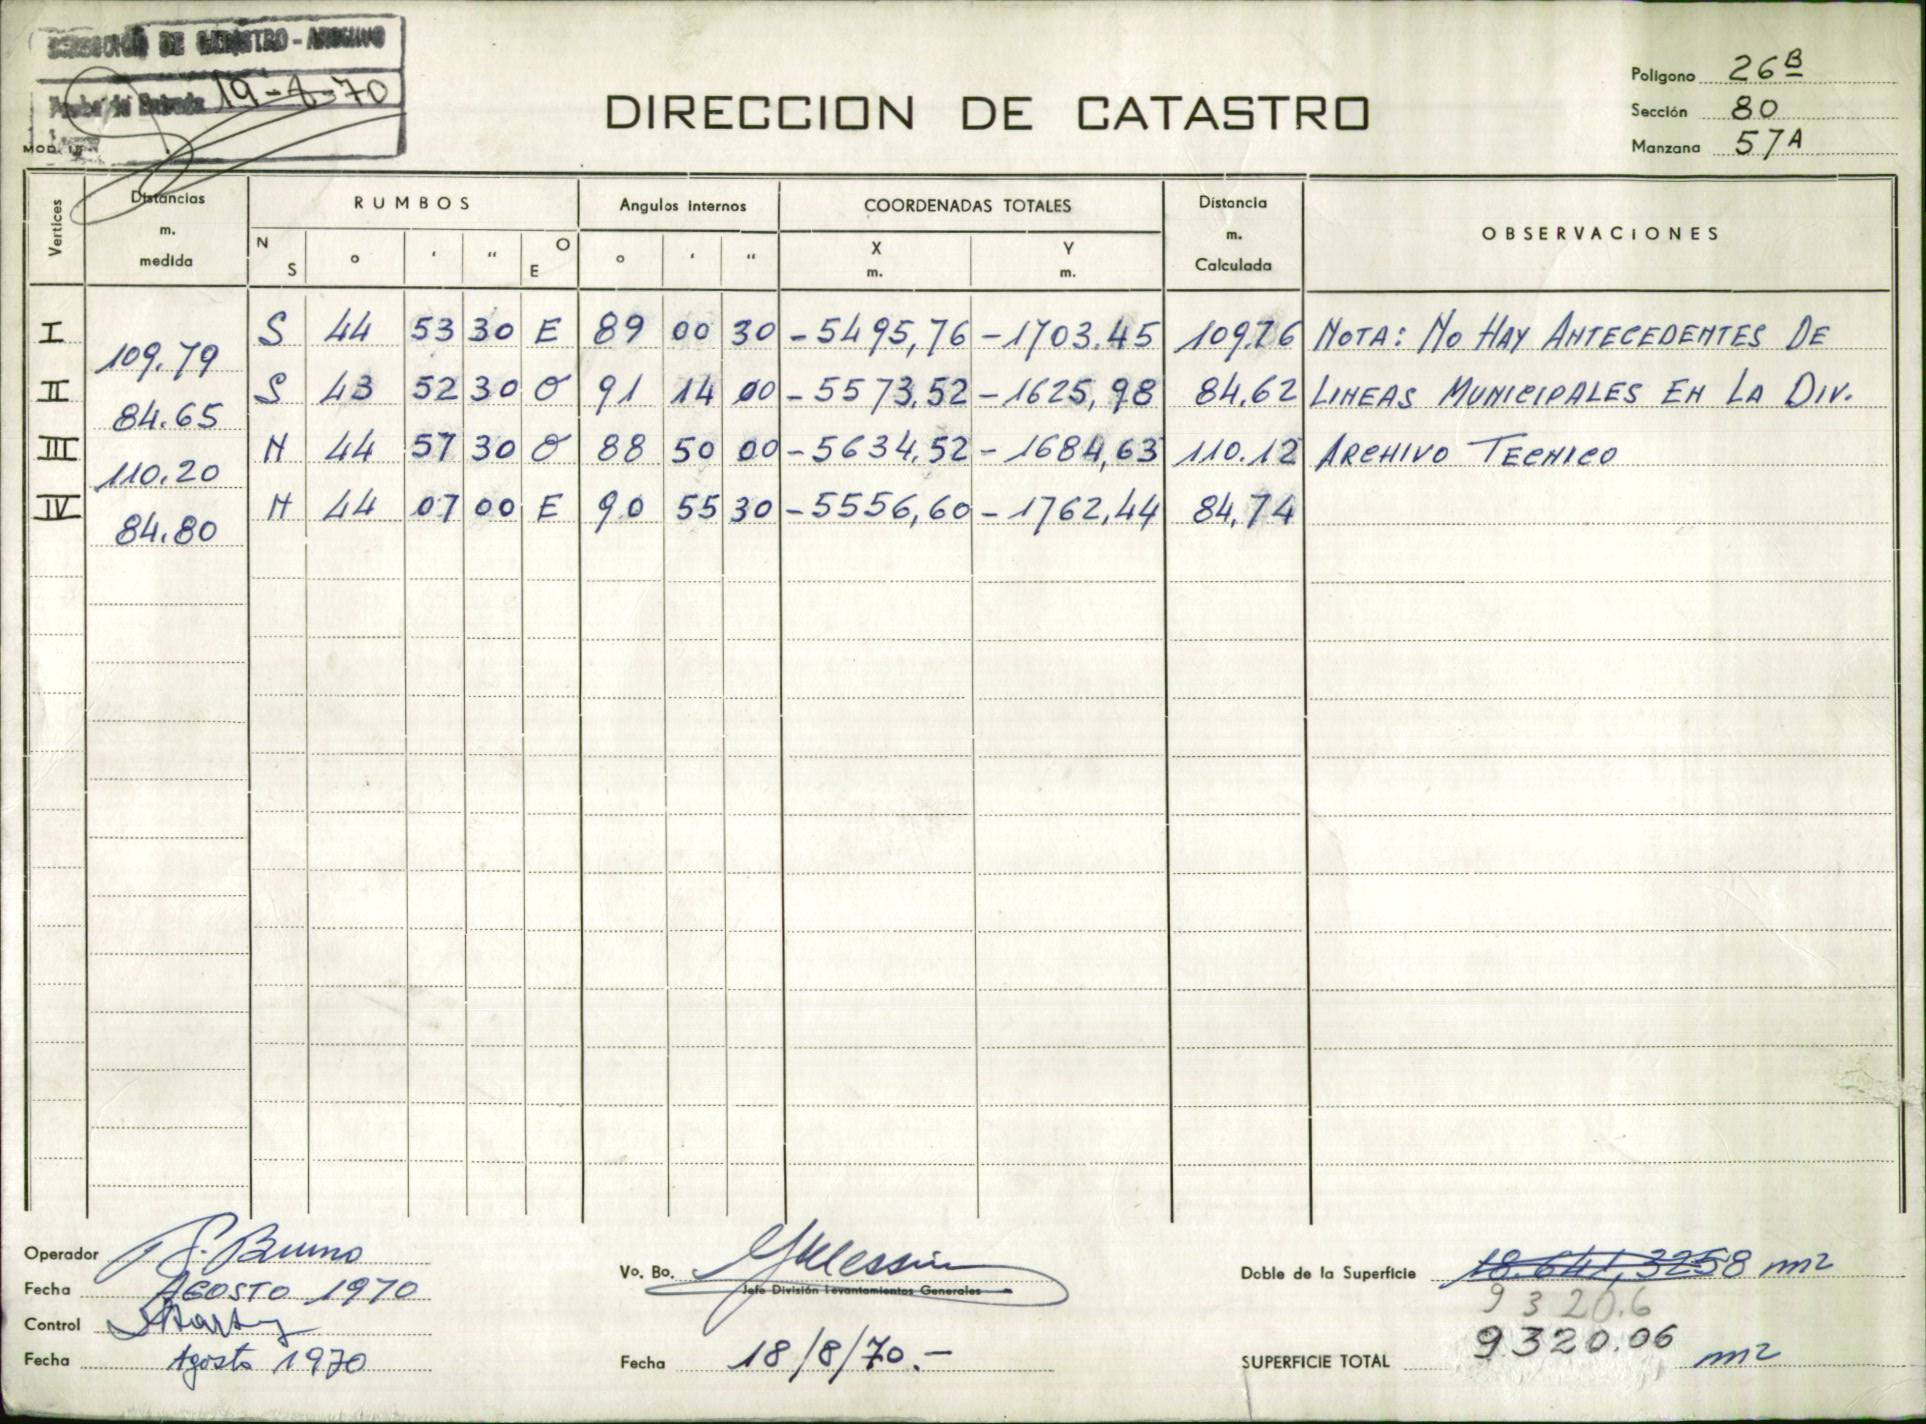 DIRECCION DE CATASTRO - ARCHIVO
Fecha de Entrada 19-4-70
MOD.
DIRECCION DE CATASTRO
Poligono 26 B
Sección 80
Manzana 57 A
Vertices
Distancias m. medida
RUMBOS
N S o ' " O E
Angulos Internos
o ' "
COORDENADAS TOTALES
X m. Y m.
Distancia m. Calculada
OBSERVACiONES
I S 44 53 30 E 89 00 30 -5495,76 -1703.45 109.76 NOTA: NO HAY ANTECEDENTES DE
109.79
II S 43 52 30 O 91 14 00 -5573,52 -1625,98 84.62 LINEAS MUNICIPALES EN LA DIV.
84.65
III N 44 57 30 O 88 50 00 -5634,52 -1684,63 110.12 ARCHIVO TECNICO
110.20
IV N 44 07 00 E 90 55 30 -5556,60 -1762,44 84,74
84.80
Operador Bruno
Fecha AGOSTO 1970
Control
Fecha Agosto 1970
Vo. Bo.
Jefe División Levantamientos Generales
Fecha 18/8/70.-
Doble de la Superficie 18.641,3258 m2
9320.6
SUPERFICIE TOTAL 9320.06 m2